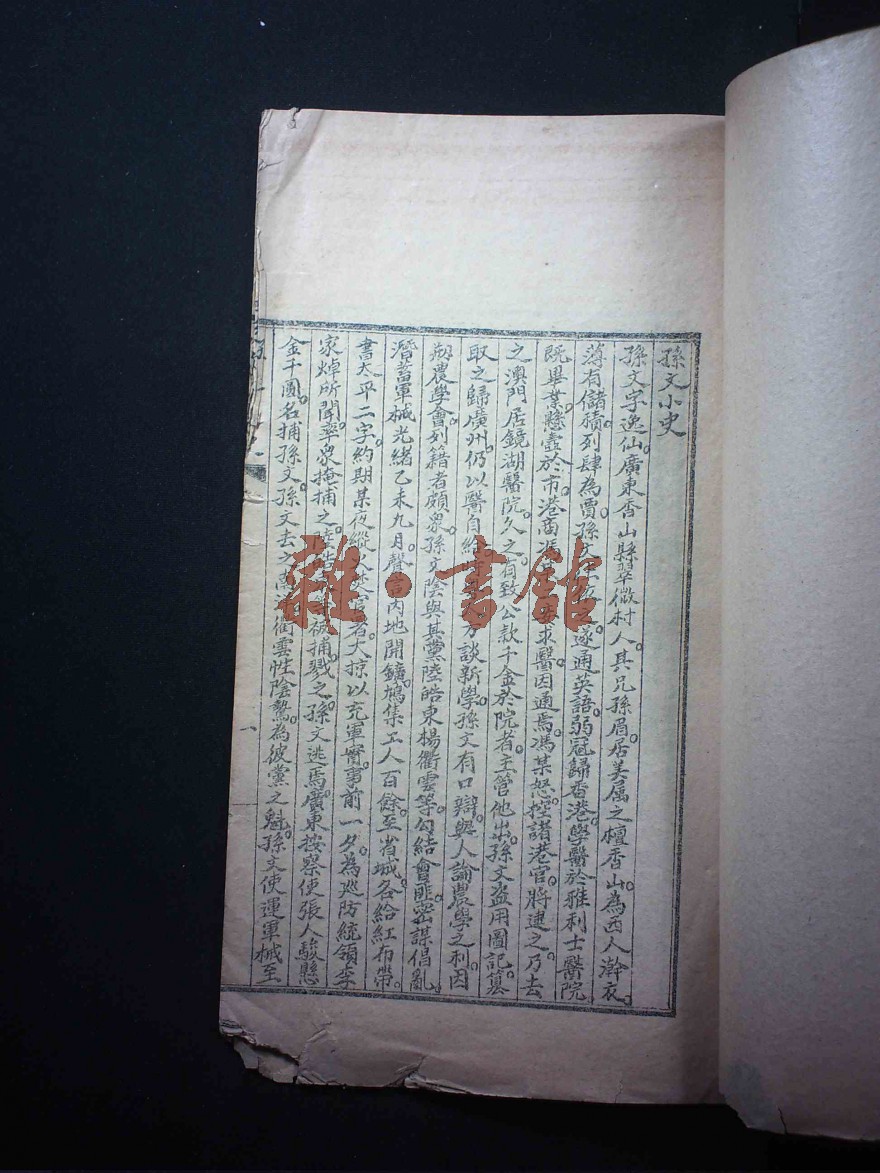 孫文小史
孫文字逸仙。廣東香山縣翠微村人。其兄孫眉。居美屬之檀香山。為西人澣衣。
薄有儲積。列肆為賈。孫文遂通英語。弱冠歸香港。學醫於雅利士醫院。
既畢業懸壺於市。港商馮求醫。因通焉。馮某怒。控諸港官。將逮之。乃去
之澳門。居鏡湖醫院。久之。有致公款千金於院者。主管他出。孫文盜用圖記。篡
取之。歸廣州。仍以醫自給方談新學。孫文有口辯。與人論農學之利。因
剏農學會。列籍者頗衆。孫文陰與其黨陸皓東楊衢雲等。勾結會匪。密謀倡亂。
潛蓄軍械。光緒乙未九月。聲言內地開鑛。鳩集工人百餘。至省城。各給紅布帶。
書太平二字。約期某夜縱火大掠以充軍實。事前一夕。為巡防統領李
家焯所聞。率衆掩捕之。陸被捕。戮之。孫文逃焉。廣東按察使張人駿懸
金千圓。名捕孫文。孫文去之南衢雲性陰鷙。為彼黨之魁。孫文使運軍械至
一
雜·書館